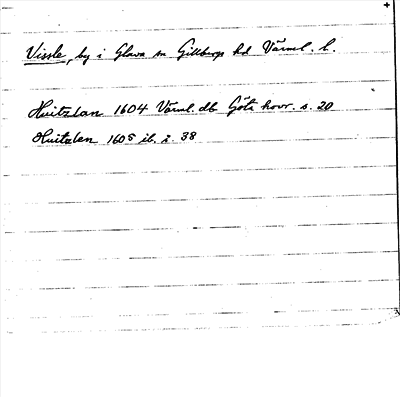 Vissle, by i Glava sn Gillbergs hd Värml. l.
Huitzlan 1604 Värml. db Göta hovr. s. 20
Huitzlan 1605 ib. s. 38